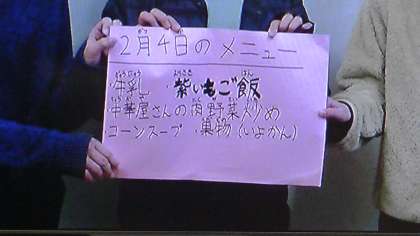 2月4日のメニュー
・牛乳 ・紫いもご飯
・中華屋さんの肉野菜炒め
・コーンスープ ・果物(いよかん)